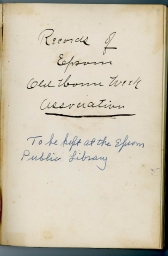 Records of
Epsom
Old Home Week
Association
To be kept at the Epsom
Public Library